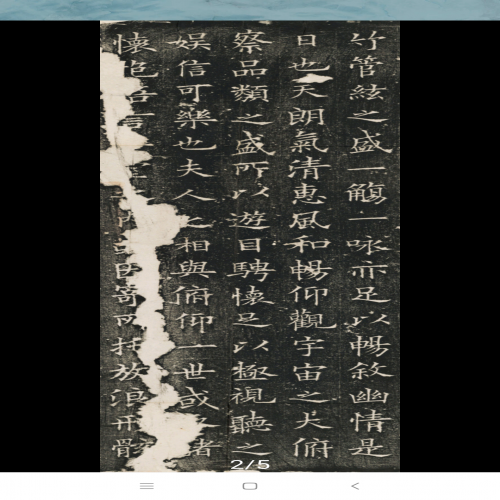 竹管絃之盛一觴一咏亦足以暢敘幽情是
日也天朗氣清惠風和暢仰觀宇宙之大俯
察品類之盛所以遊目騁懷足以極視聽之
娛信可樂也夫人之相與俯仰一世或諸
懷抱言內因寄所託放浪形骸
2/5